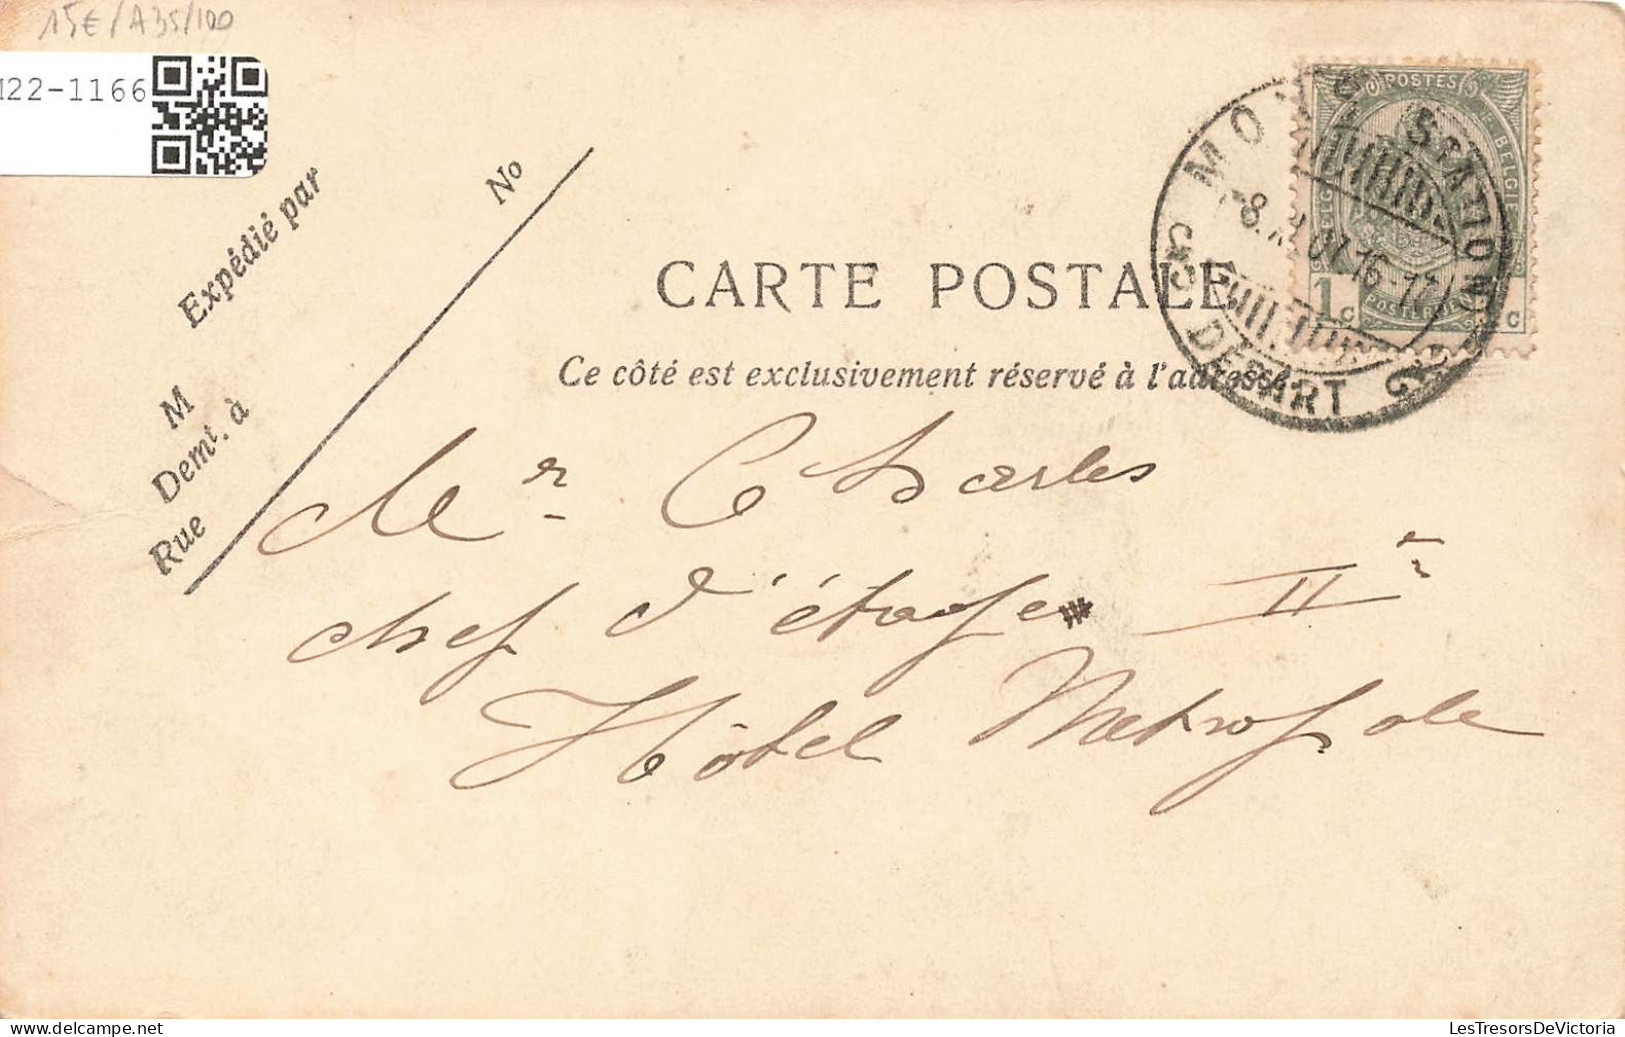 15€/A35/100
M22-1166
Expédié par
No
M
Demt. à
Rue
CARTE POSTALE
Ce côté est exclusivement réservé à l'adresse.
MONS STATION
8. 07 16-17
DÉPART
POSTES
BELGIE
BELGIQUE
1 c
c
POSTERIJEN
Mr Charles
chef d'étage II r
Hôtel Metropole
www.delcampe.net
LesTresorsDeVictoria